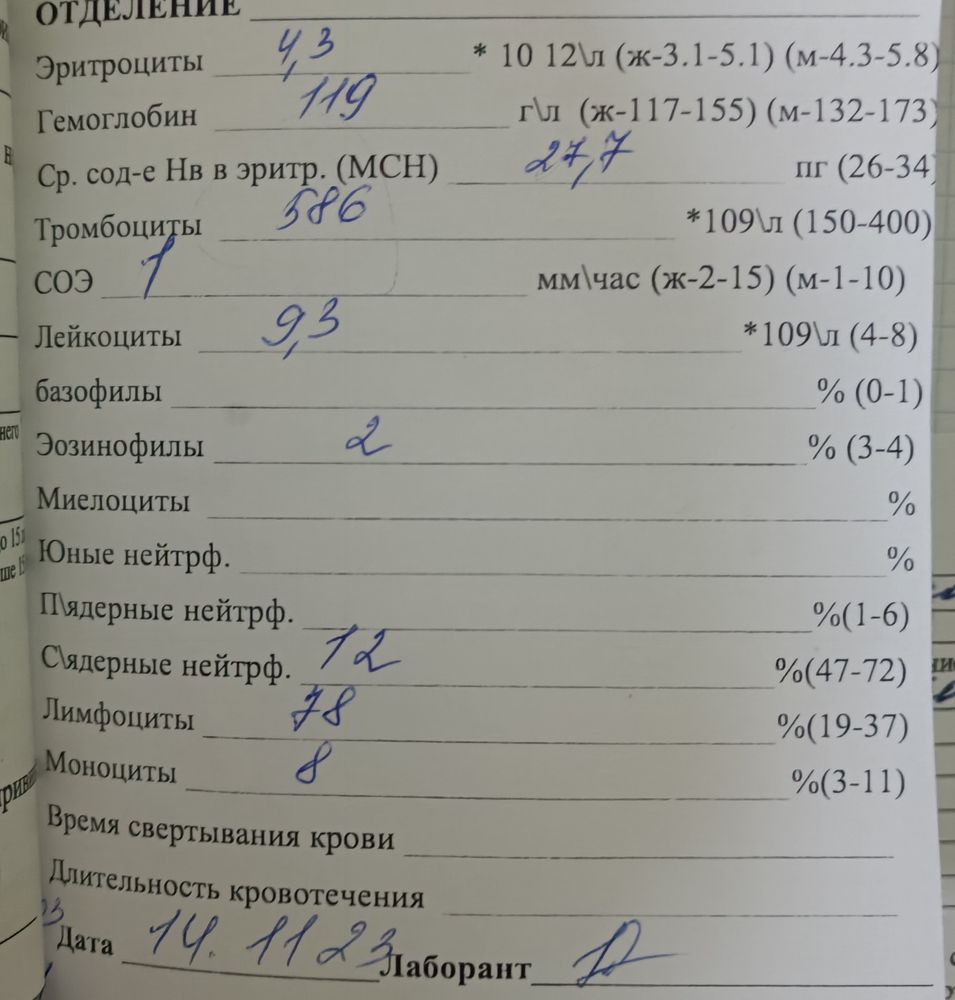 ОТДЕЛЕНИЕ
Эритроциты 4,3 * 10 12\л (ж-3.1-5.1) (м-4.3-5.8)
Гемоглобин 119 г\л (ж-117-155) (м-132-173)
Ср. сод-е Нв в эритр. (МСН) 27,7 пг (26-34)
Тромбоциты 586 *109\л (150-400)
СОЭ 1 мм\час (ж-2-15) (м-1-10)
Лейкоциты 9,3 *109\л (4-8)
базофилы % (0-1)
Эозинофилы 2 % (3-4)
Миелоциты %
Юные нейтрф. %
П\ядерные нейтрф. %(1-6)
С\ядерные нейтрф. 12 %(47-72)
Лимфоциты 78 %(19-37)
Моноциты 8 %(3-11)
Время свертывания крови
Длительность кровотечения
Дата 14. 11 23 Лаборант